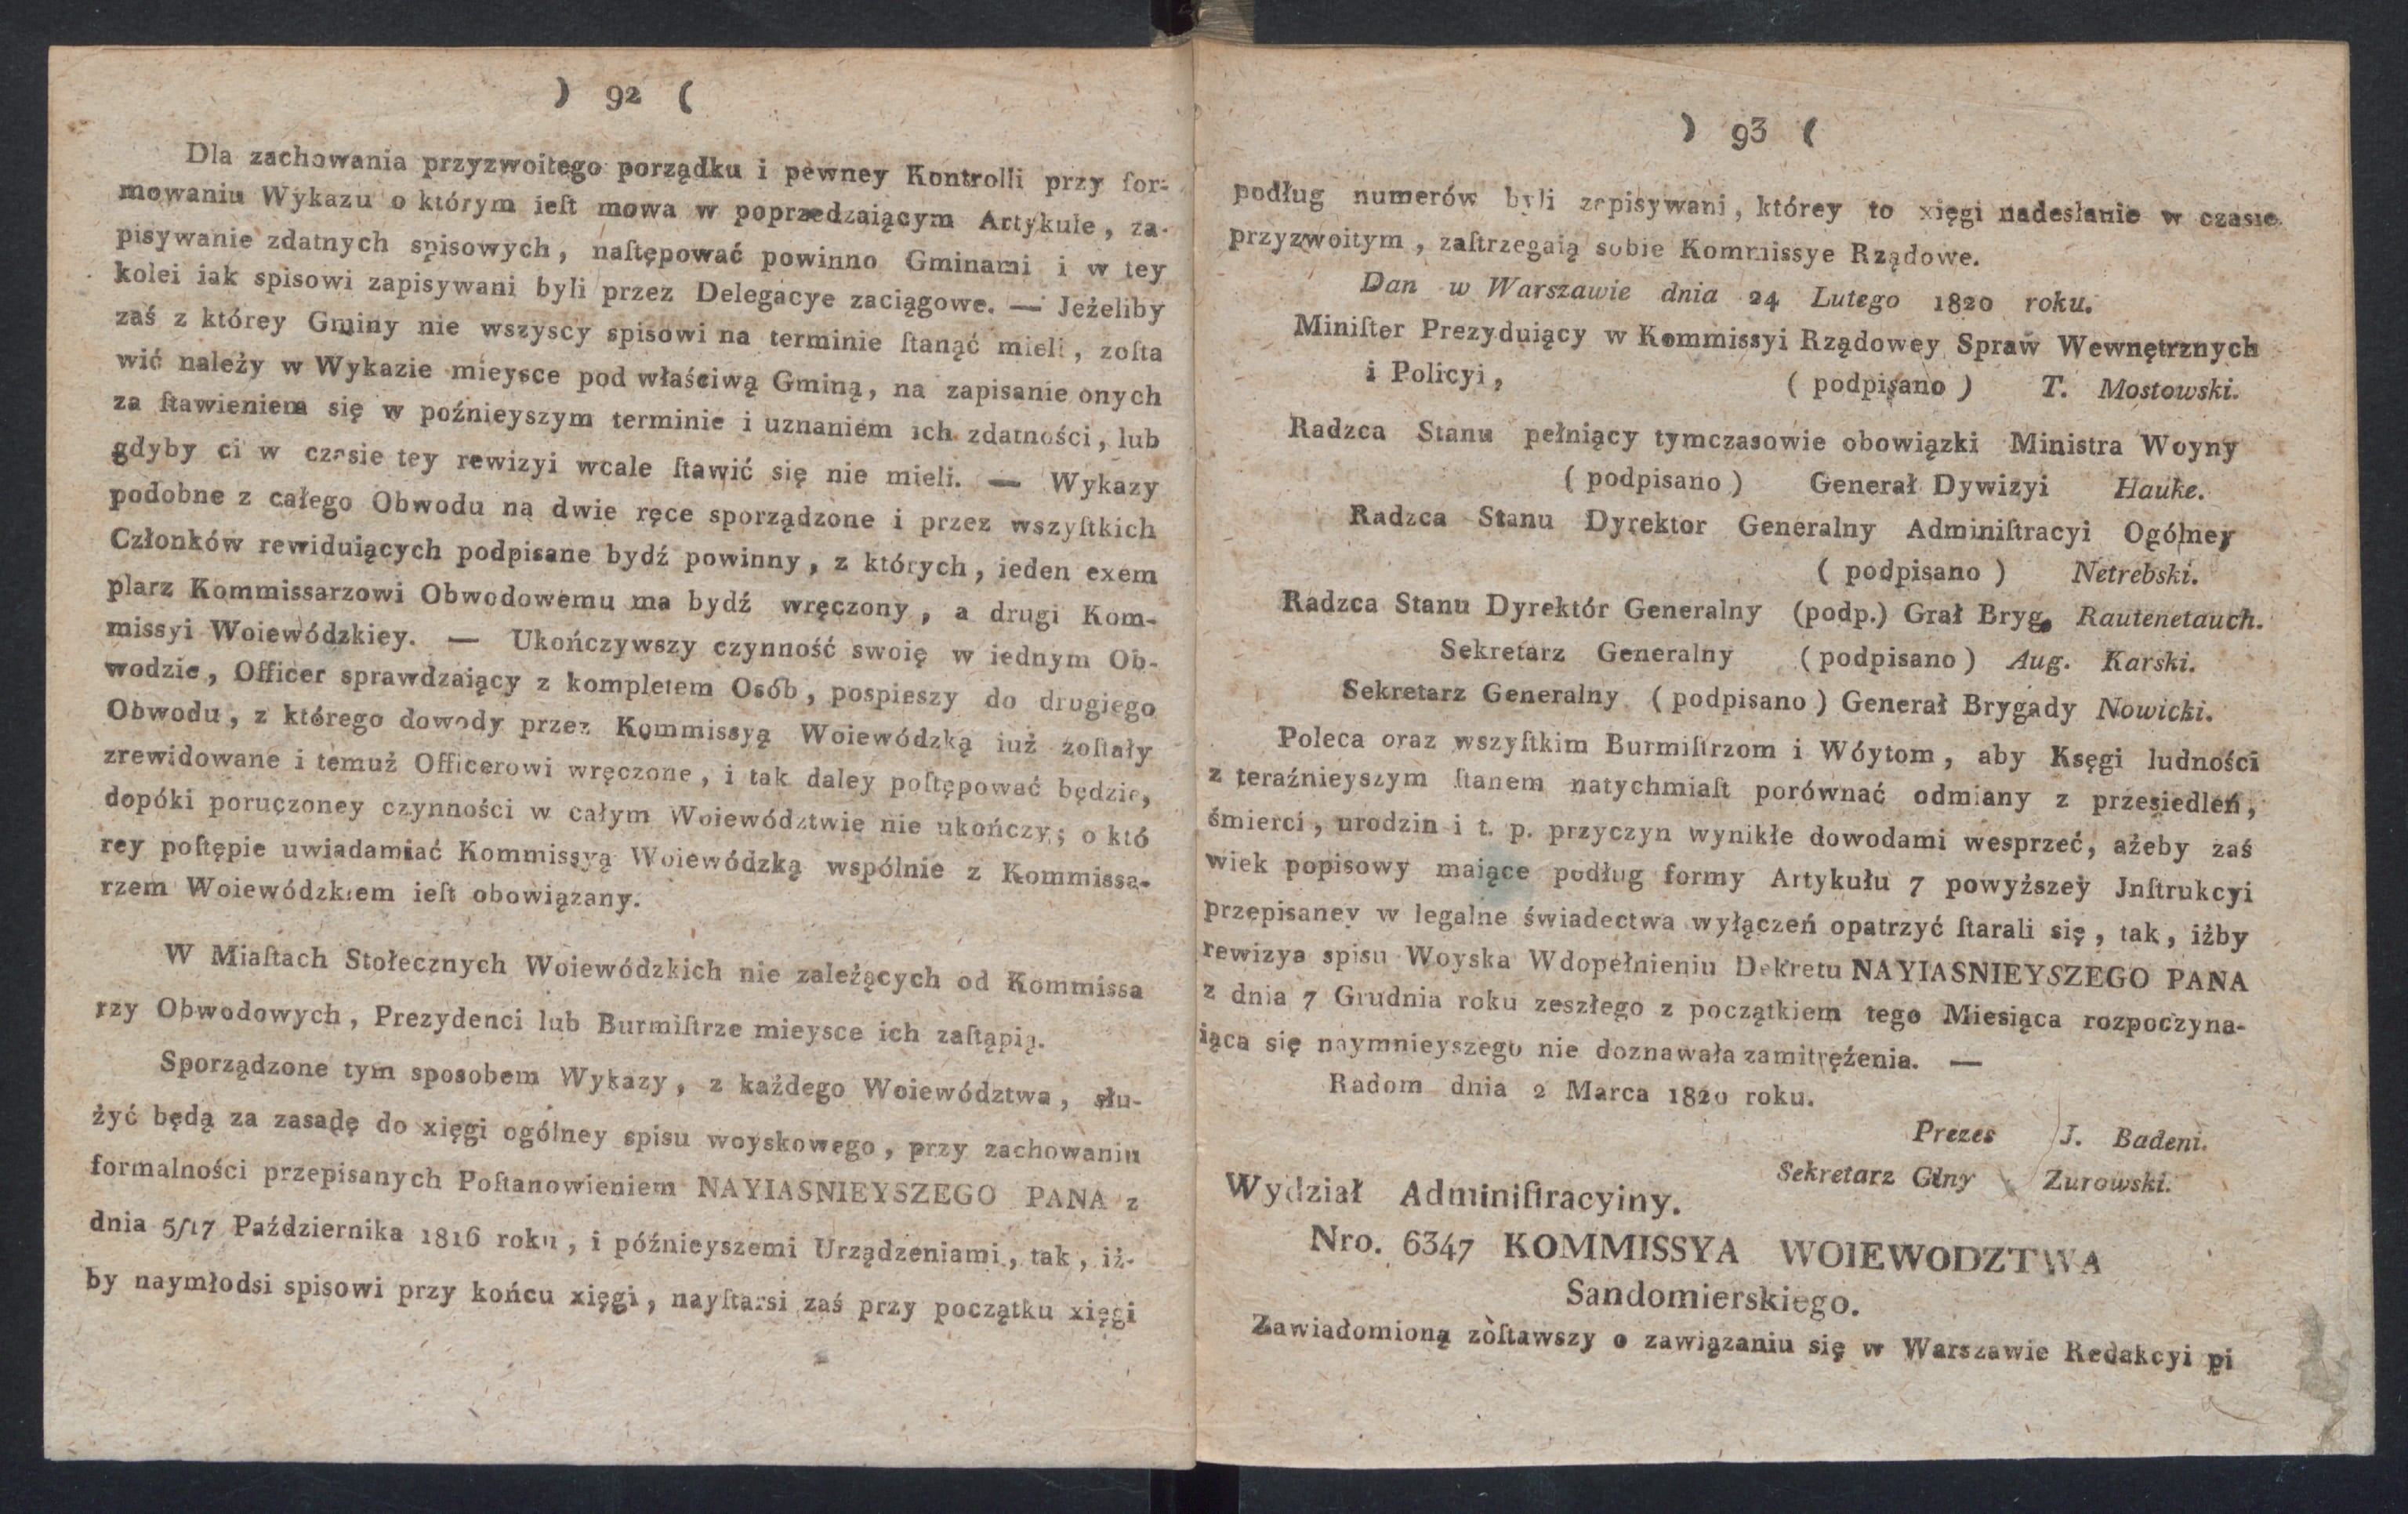 ) 92 (
Dla zachowania przyzwoitego porządku i pewney Kontrolli przy for-
mowaniu Wykazu o którym ieſt mowa w poprzedzaiącym Artykule, za-
pisywanie zdatnych spisowych, naſtępować powinno Gminami i w tey
kolei iak spisowi zapisywani byli przez Delegacye zaciągowe. — Jeżeliby
zaś z którey Gminy nie wszyscy spisowi na terminie ſtanąć mieli, zoſta
wić należy w Wykazie mieysce pod właściwą Gminą, na zapisanie onych
za ſtawieniem się w poźnieyszym terminie i uznaniem ich zdatności, lub
gdyby ci w czasie tey rewizyi wcale ſtawić się nie mieli. — Wykazy
podobne z całego Obwodu na dwie ręce sporządzone i przez wszyſtkich
Członków rewiduiących podpisane bydź powinny, z których, ieden exem
plarz Kommissarzowi Obwodowemu ma bydź wręczony, a drugi Kom-
missyi Woiewódzkiey. — Ukończywszy czynność swoię w iednym Ob-
wodzie, Officer sprawdzaiący z kompletem Osób, pospieszy do drugiego
Obwodu, z którego dowody przez Kommissyą Woiewódzką iuż zoſtały
zrewidowane i temuż Officerowi wręczone, i tak daley poſtępować będzie,
dopóki poruczoney czynności w całym Woiewództwie nie ukończy; o któ
rey poſtępie uwiadamiać Kommissyą Woiewódzką wspólnie z Kommissa-
rzem Woiewódzkiem ieſt obowiązany.
W Miaſtach Stołecznych Woiewódzkich nie zależących od Kommissa
rzy Obwodowych, Prezydenci lub Burmiſtrze mieysce ich zaſtąpią.
Sporządzone tym sposobem Wykazy, z każdego Woiewództwa, słu-
żyć będą za zasadę do xięgi ogólney spisu woyskowego, przy zachowaniu
formalności przepisanych Poſtanowieniem NAYIASNIEYSZEGO PANA z
dnia 5/17 Października 1816 roku, i późnieyszemi Urządzeniami, tak, iż-
by naymłodsi spisowi przy końcu xięgi, nayſtarsi zaś przy początku xięgi
) 93 (
podług numerów byli zapisywani, którey to xięgi nadesłanie w czasie
przyzwoitym, zaſtrzegaią sobie Kommissye Rządowe.
Dan w Warszawie dnia 24 Lutego 1820 roku.
Miniſter Prezyduiący w Kommissyi Rządowey Spraw Wewnętrznych
i Policyi, (podpisano) T. Mostowski.
Radzca Stanu pełniący tymczasowie obowiązki Ministra Woyny
(podpisano) Generał Dywizyi Hauke.
Radzca Stanu Dyrektor Generalny Adminiſtracyi Ogólney
(podpisano) Netrebski.
Radzca Stanu Dyrektór Generalny (podp.) Grał Bryg. Rautenetauch.
Sekretarz Generalny (podpisano) Aug. Karski.
Sekretarz Generalny (podpisano) Generał Brygady Nowicki.
Poleca oraz wszyſtkim Burmiſtrzom i Wóytom, aby Ksęgi ludności
z teraźnieyszym ſtanem natychmiaſt porównać odmiany z przesiedleń,
śmierci, urodzin i t. p. przyczyn wynikłe dowodami wesprzeć, ażeby zaś
wiek popisowy maiące podług formy Artykułu 7 powyższey Jnſtrukcyi
przepisaney w legalne świadectwa wyłączeń opatrzyć ſtarali się, tak, iżby
rewizya spisu Woyska Wdopełnieniu Dekretu NAYIASNIEYSZEGO PANA
z dnia 7 Grudnia roku zeszłego z początkiem tego Miesiąca rozpoczyna-
iąca się naymnieyszego nie doznawała zamitrężenia. —
Radom dnia 2 Marca 1820 roku.
Prezes J. Badeni.
Sekretarz Glny Zurowski.
Wydział Adminiſtracyiny.
Nro. 6347 KOMMISSYA WOIEWODZTWA
Sandomierskiego.
Zawiadomioną zòſtawszy o zawiązaniu się w Warszawie Redakcyi pi